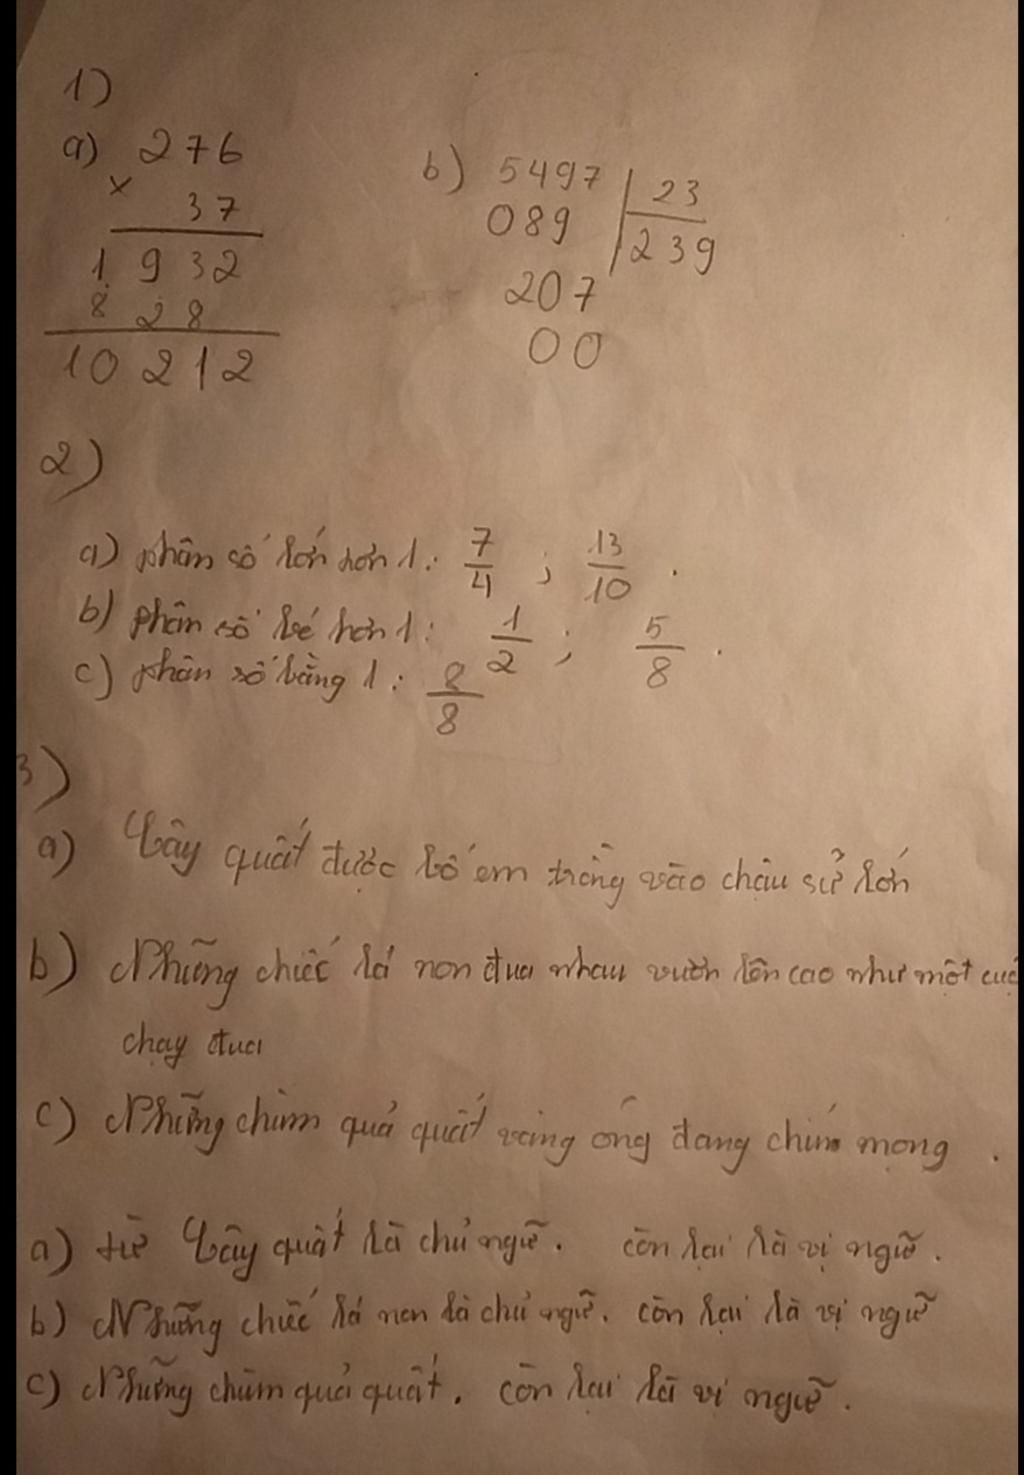 1)
a) 276
×
37
1932
828
10212
b) 5497 | 23
089 239
207
00
2)
a) phân số lớn hơn 1: 7/4 ; 13/10 .
b) phân số bé hơn 1: 1/2 ; 5/8 .
c) phân số bằng 1: 8/8
3)
a) Cây quất được bố em trồng vào chậu sứ lớn
b) Những chiếc lá non đua nhau vươn lên cao như một cuộ
chạy đua
c) Những chùm quả quất vàng óng đang chín mọng .
a) từ Cây quất là chủ ngữ. còn lại là vị ngữ.
b) Những chiếc lá non là chủ ngữ. còn lại là vị ngữ
c) Những chùm quả quất. còn lại là vị ngữ.